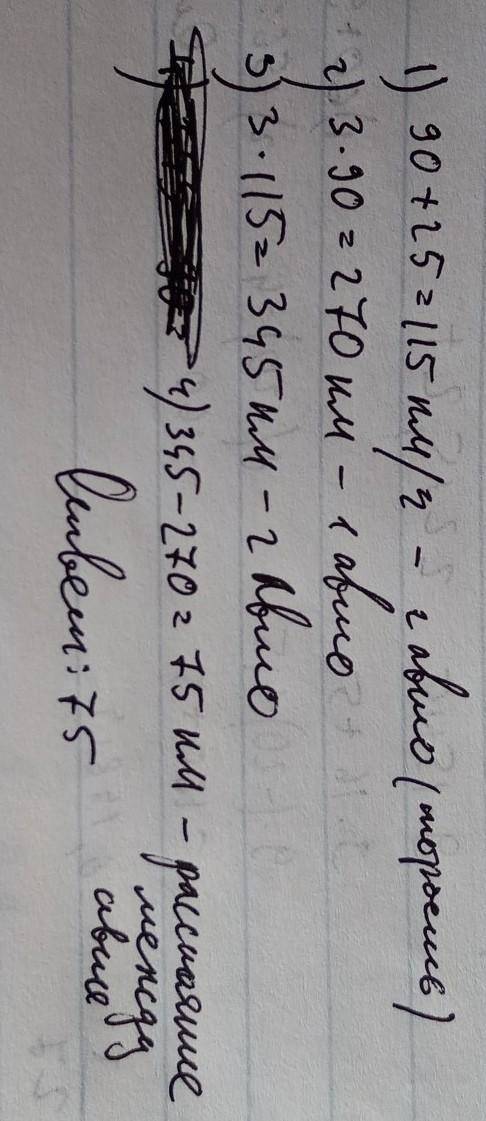 1) 90 + 25 = 115 км/ч - 2 авто (скорость)
2) 3 · 90 = 270 км - 1 авто
3) 3 · 115 = 345 км - 2 авто
4) 345 - 270 = 75 км - расстояние
между
авто
Ответ: 75